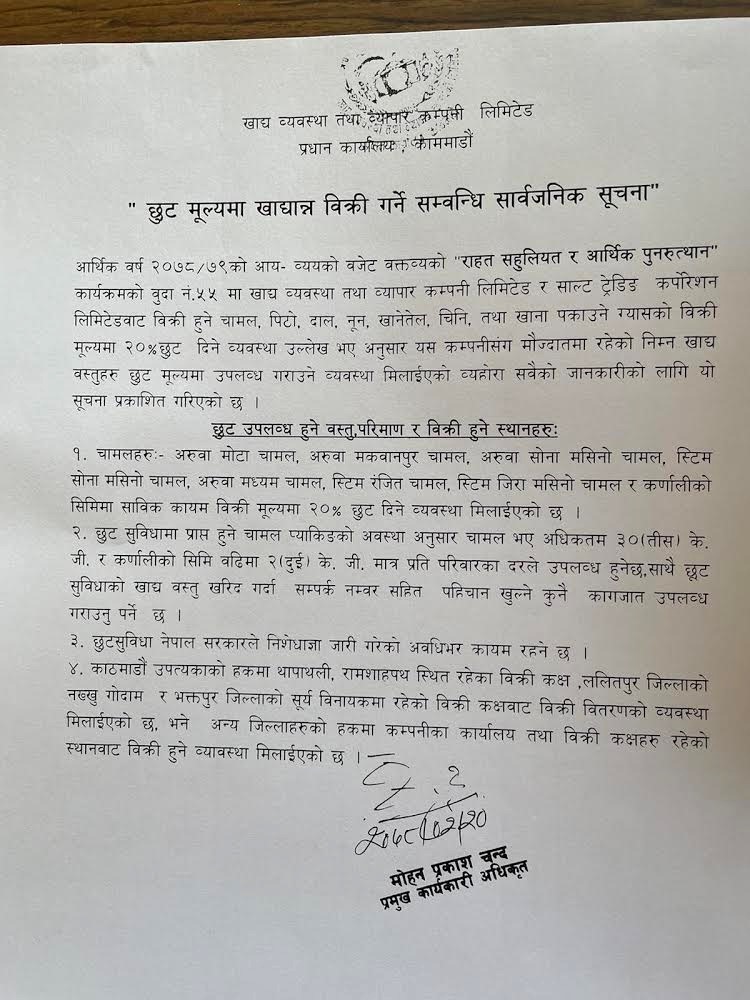 खाद्य व्यवस्था तथा व्यापार कम्पनी लिमिटेड
प्रधान कार्यालय , काममाडौं
" छुट मूल्यमा खाद्यान्न विक्री गर्ने सम्वन्धि सार्वजनिक सूचना"
आर्थिक वर्ष २०७८/७९को आय- व्ययको वजेट वक्तव्यको "राहत सहुलियत र आर्थिक पुनरुत्थान"
कार्यक्रमको वुदा नं.५५ मा खाद्य व्यवस्था तथा व्यापार कम्पनी लिमिटेड र साल्ट ट्रेडिड कर्पोरेशन
लिमिटेडवाट विक्री हुने चामल, पिटो, दाल, नून, खानेतेल, चिनि, तथा खाना पकाउने ग्यासको विक्री
मूल्यमा २०%छुट दिने व्यवस्था उल्लेख भए अनुसार यस कम्पनीसंग मौज्दातमा रहेको निम्न खाद्य
वस्तुहरु छुट मूल्यमा उपलव्ध गराउने व्यवस्था मिलाईएको व्यहोरा सवैको जानकारीको लागि यो
सूचना प्रकाशित गरिएको छ ।
छुट उपलव्ध हुने वस्तु,परिमाण र विक्री हुने स्थानहरुः
१. चामलहरुः- अरुवा मोटा चामल, अरुवा मकवानपुर चामल, अरुवा सोना मसिनो चामल, स्टिम
सोना मसिनो चामल, अरुवा मध्यम चामल, स्टिम रंजित चामल, स्टिम जिरा मसिनो चामल र कर्णालीको
सिमिमा साविक कायम विक्री मूल्यमा २०% छुट दिने व्यवस्था मिलाईएको छ ।
२. छुट सुविधामा प्राप्त हुने चामल प्याकिङको अवस्था अनुसार चामल भए अधिकतम ३०(तीस) के.
जी. र कर्णालीको सिमि वढिमा २(दुई) के. जी. मात्र प्रति परिवारका दरले उपलव्ध हुनेछ,साथै छूट
सुविधाको खाद्य वस्तु खरिद गर्दा सम्पर्क नम्वर सहित पहिचान खुल्ने कुनै कागजात उपलव्ध
गराउनु पर्ने छ ।
३. छुटसुविधा नेपाल सरकारले निशेधाज्ञा जारी गरेको अवधिभर कायम रहने छ ।
४. काठमाडौं उपत्यकाको हकमा थापाथली, रामशाहपथ स्थित रहेका विक्री कक्ष ,ललितपुर जिल्लाको
नख्खु गोदाम र भक्तपुर जिल्लाको सूर्य विनायकमा रहेको विक्री कक्षवाट विक्री वितरणको व्यवस्था
मिलाईएको छ, भने अन्य जिल्लाहरुको हकमा कम्पनीका कार्यालय तथा विक्री कक्षहरु रहेको
स्थानवाट विक्री हुने व्यावस्था मिलाईएको छ ।
२०७८/०२/२०
मोहन प्रकाश चन्द
प्रमुख कार्यकारी अधिकृत